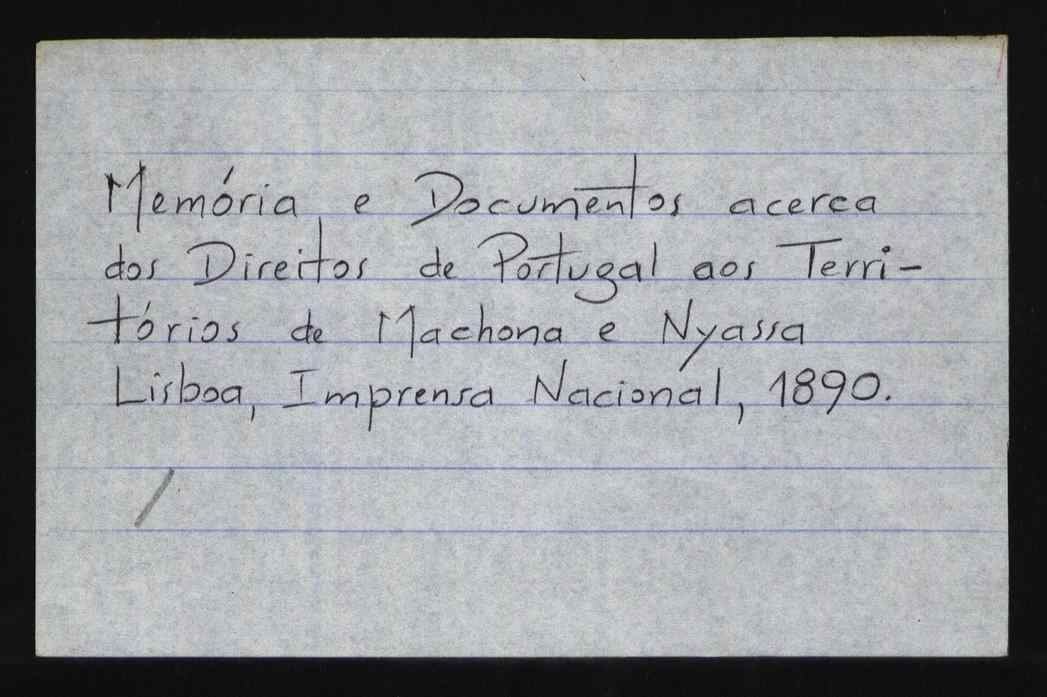 Memória e Documentos acerca
dos Direitos de Portugal aos Terri-
tórios de Machona e Nyassa
Lisboa, Imprensa Nacional, 1890.
/